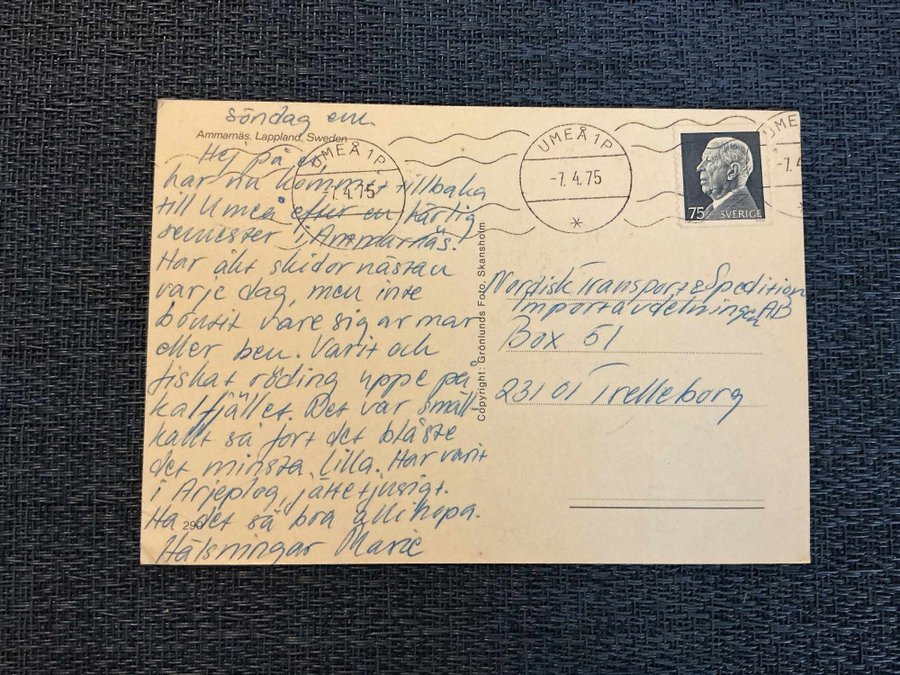 söndag em
Ammarnäs, Lappland, Sweden
Hej på er,
har nu kommit tillbaka
till Umeå efter en härlig
semester i Ammarnäs.
Har åkt skidor nästan
varje dag, men inte
brutit vare sig armar
eller ben. Varit och
fiskat röding uppe på
kalfjället. Det var smäll-
kallt så fort det blåste
det minsta lilla. Har varit
i Arjeplog, jättetjusigt.
Ha det så bra allihopa.
290
Hälsningar Marie
Copyright: Grönlunds Foto. Skansholm
UMEÅ 1P
-7. 4. 75
UMEÅ 1P
-7. 4. 75
UMEÅ
-7.4
75 SVERIGE
Nordisk Transport & Spedition
Importavdelningen AB
Box 61
231 01 Trelleborg